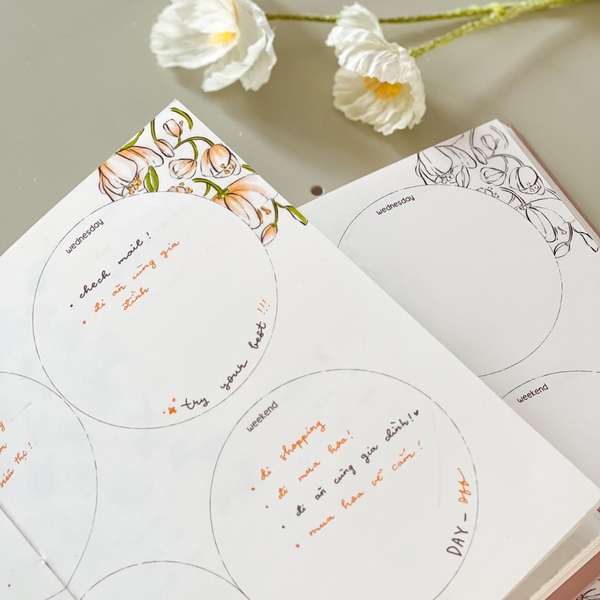 wednesday
• check mail !
• đi ăn cùng gia
đình
try your best !!!
weekend
• đi shopping
• đi mua hoa!
• đi ăn cùng gia đình! ♥
• mua hoa về cắm !
DAY - off
wednesday
weekend